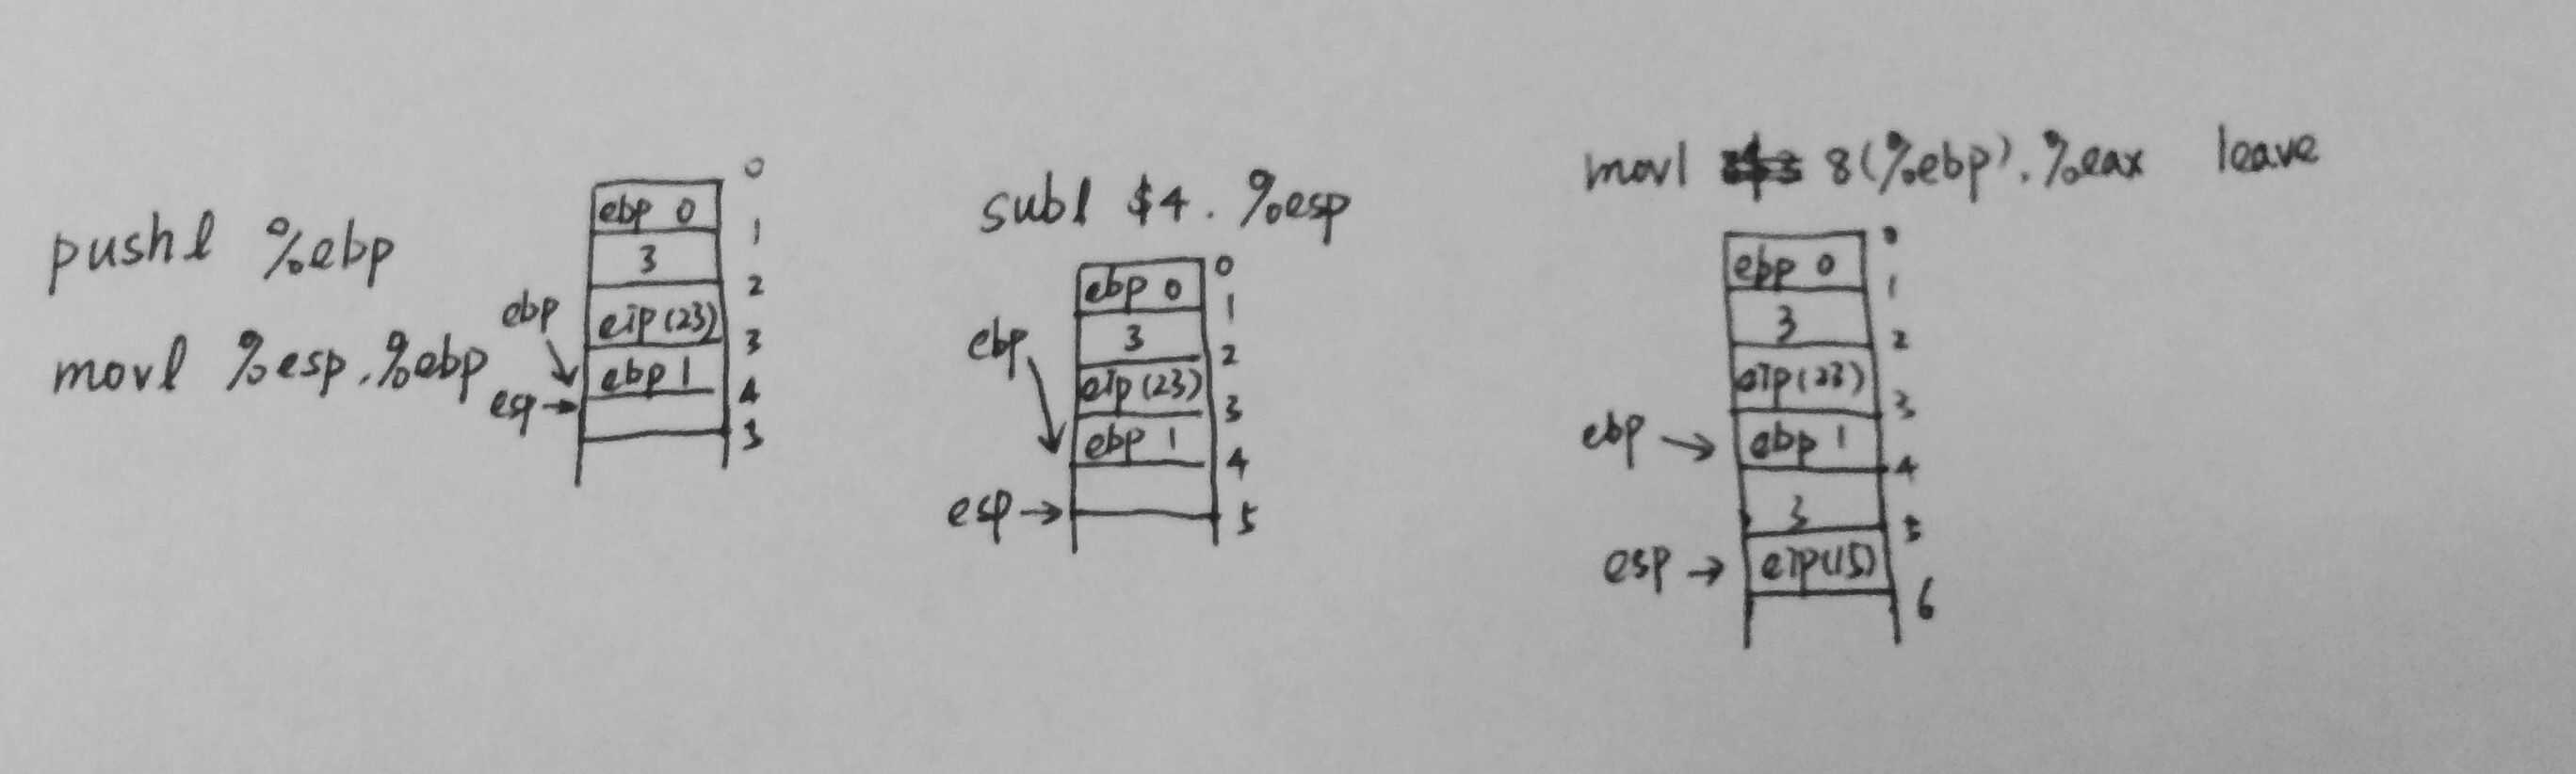 pushl %ebp
movl %esp.%ebp
0
ebp 0
1
3
2
eip(23)
3
ebp 1
4
3
ebp
esp
subl $4. %esp
0
ebp 0
1
3
2
eip(23)
3
ebp 1
4
5
ebp
esp
movl 8(%ebp).%eax leave
0
ebp 0
1
3
2
eip(23)
3
ebp 1
4
3
5
eip(15)
6
ebp
esp